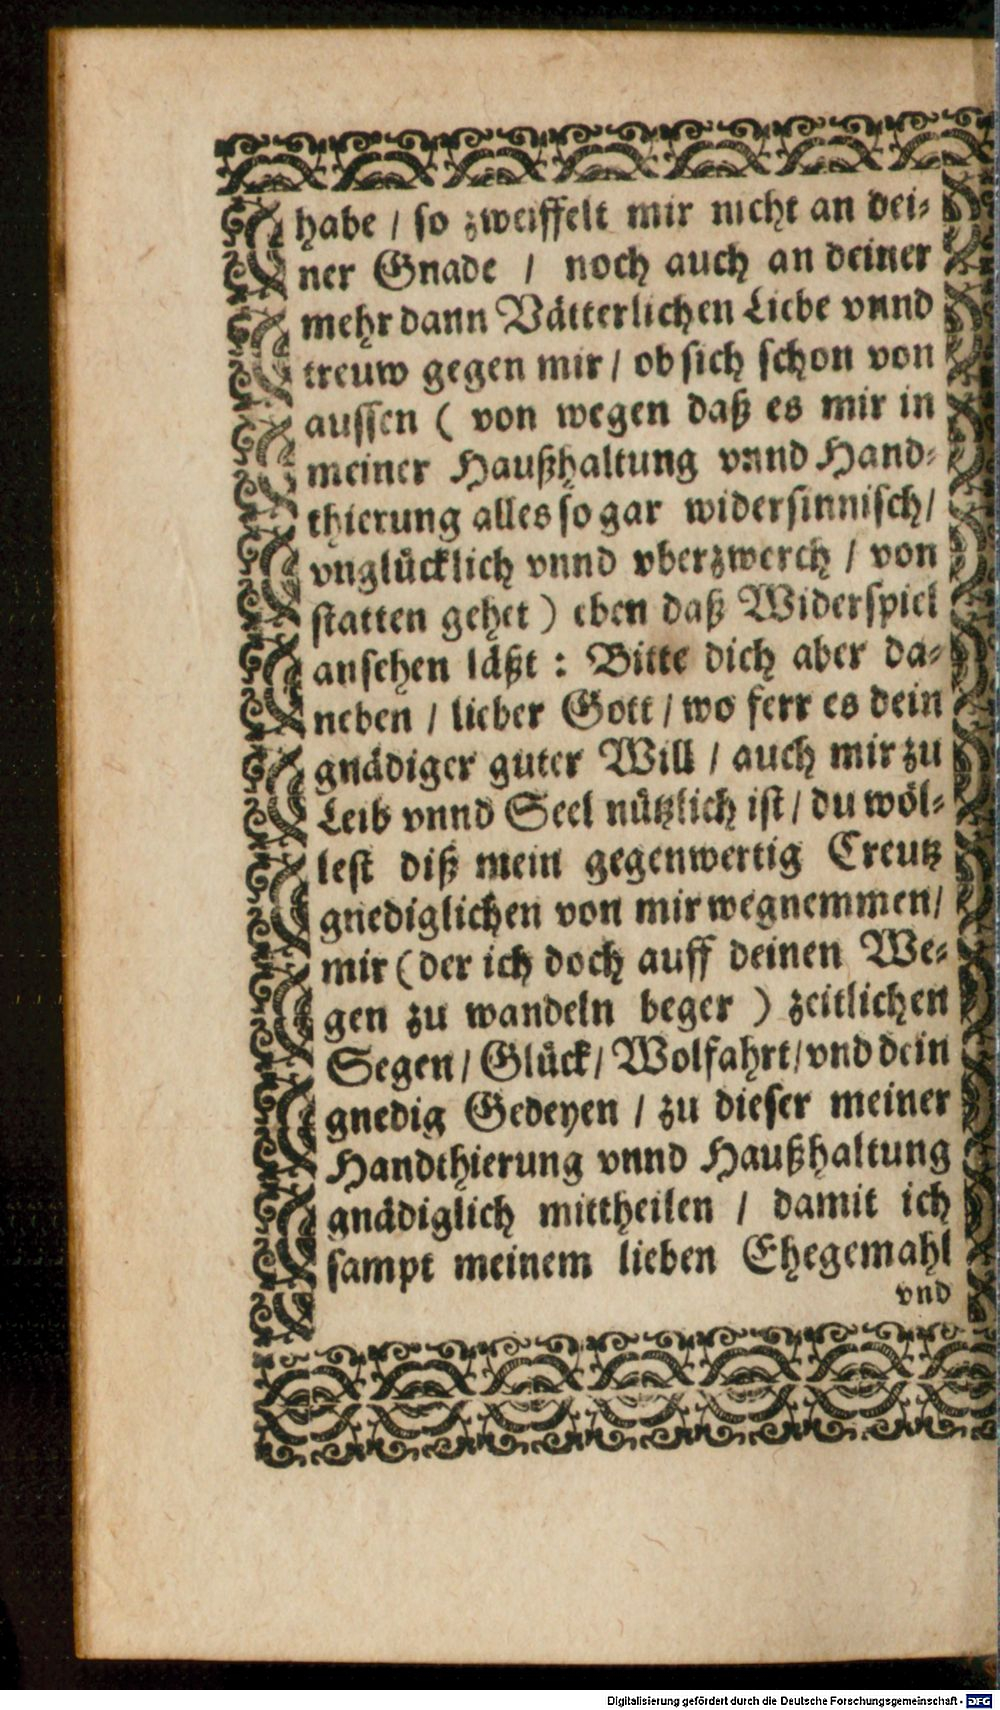 habe / so zweiffelt mir nicht an dei-
ner Gnade / noch auch an deiner
mehr dann Vätterlichen Liebe vnnd
treuw gegen mir / ob sich schon von
aussen ( von wegen daß es mir in
meiner Haußhaltung vnnd Hand-
thierung alles so gar widersinnisch /
vnglücklich vnnd vberzwerch / von
statten gehet ) eben daß Widerspiel
ansehen läßt : Bitte dich aber da-
neben / lieber Gott / wo ferr es dein
gnädiger guter Will / auch mir zu
Leib vnnd Seel nützlich ist / du wöl-
lest diß mein gegenwertig Creutz
gnediglichen von mir wegnemmen /
mir ( der ich doch auff deinen We-
gen zu wandeln beger ) zeitlichen
Segen / Glück / Wolfahrt / vnd dein
gnedig Gedeyen / zu dieser meiner
Handthierung vnnd Haußhaltung
gnädiglich mittheilen / damit ich
sampt meinem lieben Ehegemahl
vnd
Digitalisierung gefördert durch die Deutsche Forschungsgemeinschaft - DFG